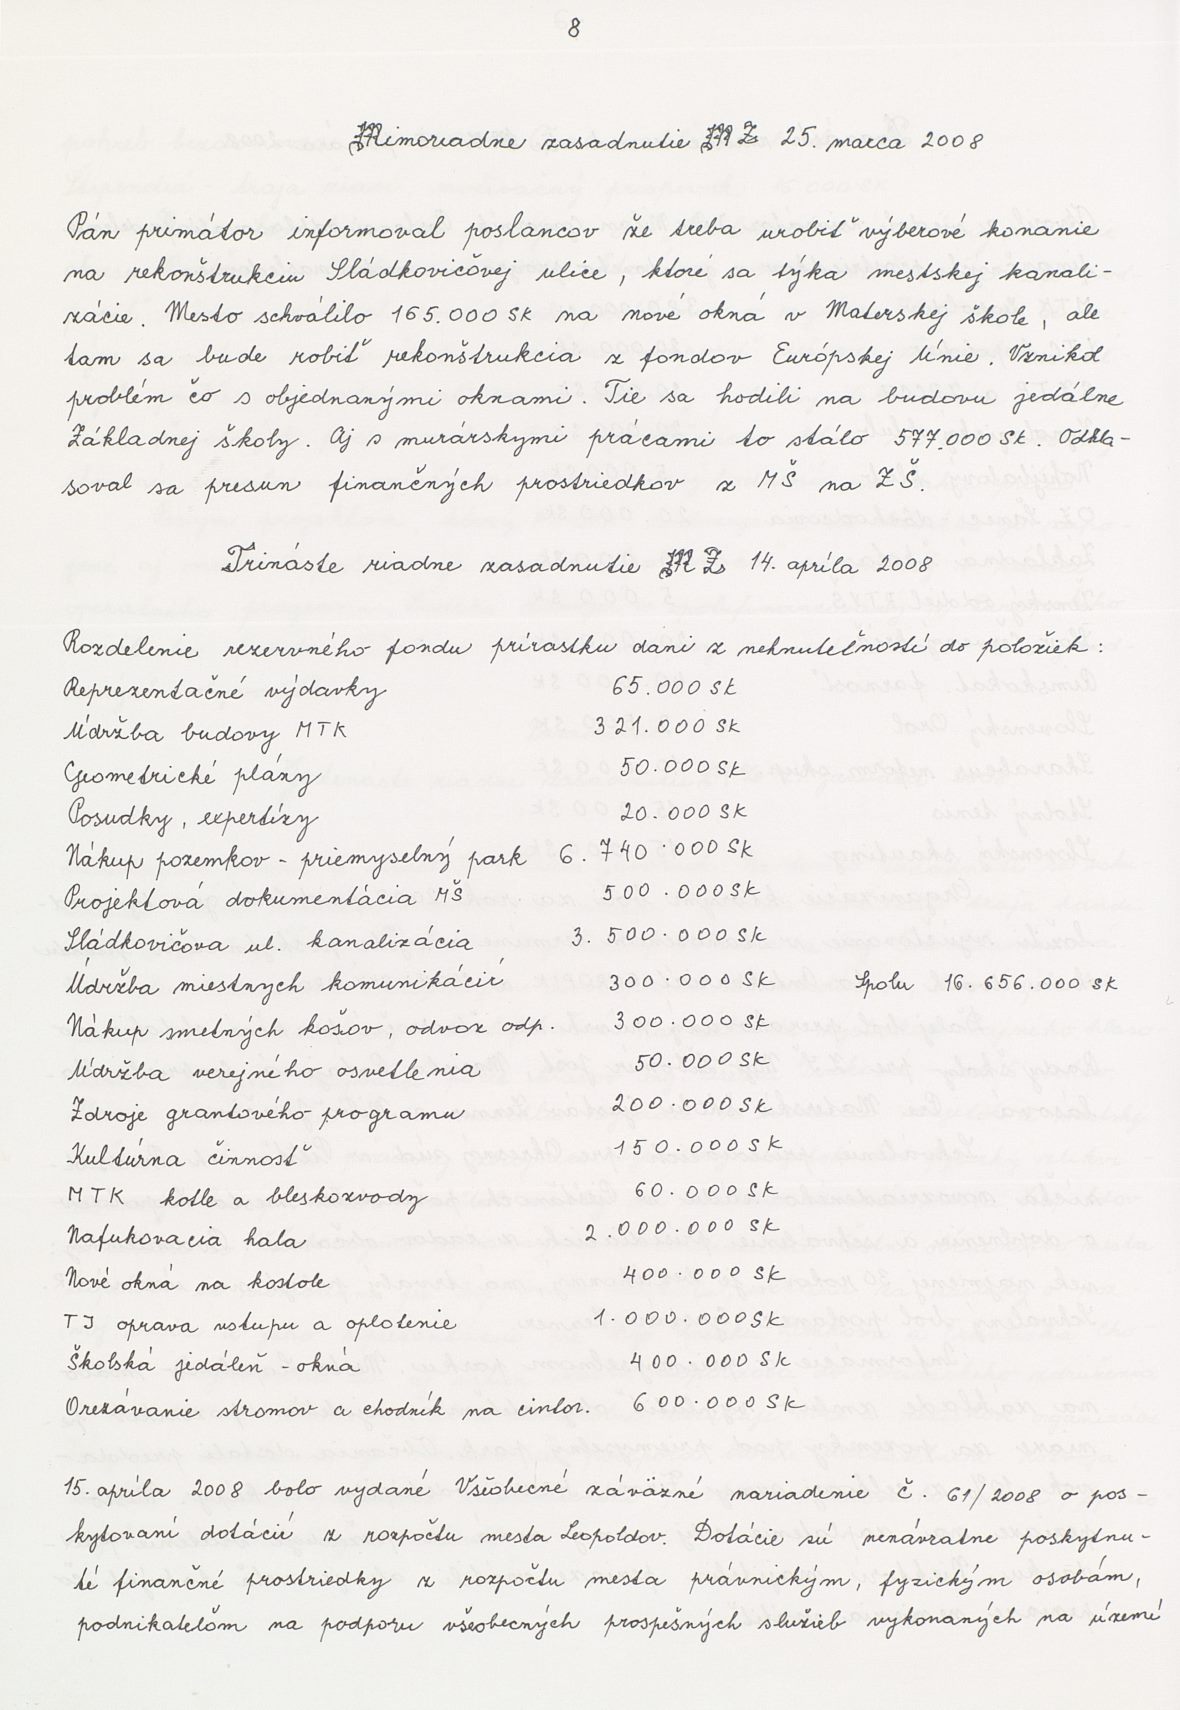 8
Mimoriadne zasadnutie MZ 25. marca 2008
Pán primátor informoval poslancov že treba urobiť výberové konanie
na rekonštrukciu Sládkovičovej ulice, ktoré sa týka mestskej kanali-
zácie. Mesto schválilo 165.000 Sk na nové okná v Materskej škole, ale
tam sa bude robiť rekonštrukcia z fondov Európskej Únie. Vznikol
problém čo s objednanými oknami. Tie sa hodili na budovu jedálne
Základnej školy. Aj s murárskymi prácami to stálo 577.000 Sk. Odhla-
soval sa presun finančných prostriedkov z MŠ na ZŠ.
Trináste riadne zasadnutie MZ 14. apríla 2008
Rozdelenie rezervného fondu prírastku dani z nehnuteľností do položiek :
Reprezentačné výdavky 65.000 Sk
Údržba budovy MTK 321.000 Sk
Geometrické plány 50.000 Sk
Posudky, expertízy 20.000 Sk
Nákup pozemkov - priemyselný park 6.740.000 Sk
Projektová dokumentácia MŠ 500.000 Sk
Sládkovičova ul. kanalizácia 3.500.000 Sk
Údržba miestnych komunikácií 300.000 Sk Spolu 16.656.000 Sk
Nákup smetných košov, odvoz odp. 300.000 Sk
Údržba verejného osvetlenia 50.000 Sk
Zdroje grantového programu 200.000 Sk
Kultúrna činnosť 150.000 Sk
MTK kotle a bleskozvody 60.000 Sk
Nafukovacia hala 2.000.000 Sk
Nové okná na kostole 400.000 Sk
TJ oprava vstupu a oplotenie 1.000.000 Sk
Školská jedáleň - okná 400.000 Sk
Orezávanie stromov a chodník na cintor. 600.000 Sk
15. apríla 2008 bolo vydané Všeobecné záväzné nariadenie č. 61/2008 o pos-
kytovaní dotácií z rozpočtu mesta Leopoldov. Dotácie sú nenávratne poskytnu-
té finančné prostriedky z rozpočtu mesta právnickým, fyzickým osobám,
podnikateľom na podporu všeobecných prospešných služieb vykonaných na území